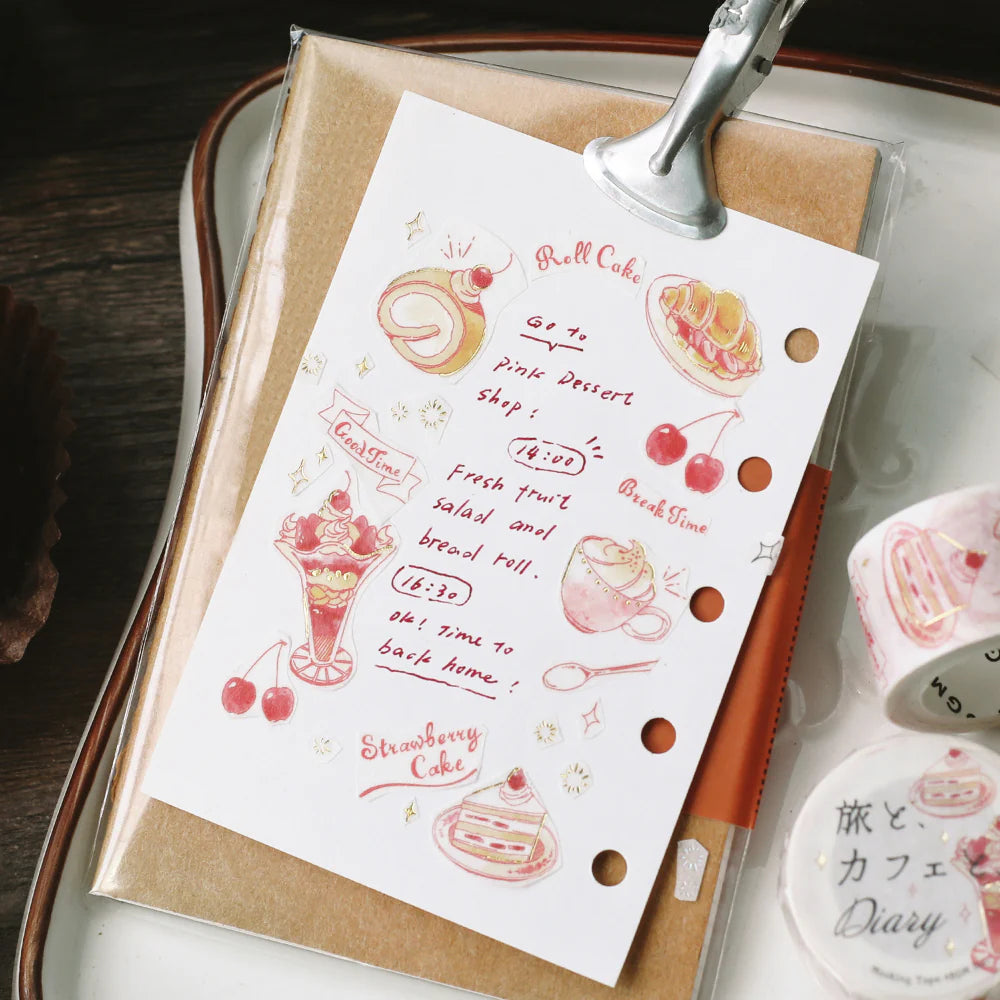 Roll Cake
Go to
Pink Dessert
Shop!
14:00
Good Time
Fresh fruit
salad and
bread roll.
Break Time
16:30
OK! Time to
back home!
Strawberry
Cake
BGM
旅と、
カフェと
Diary
Masking Tape